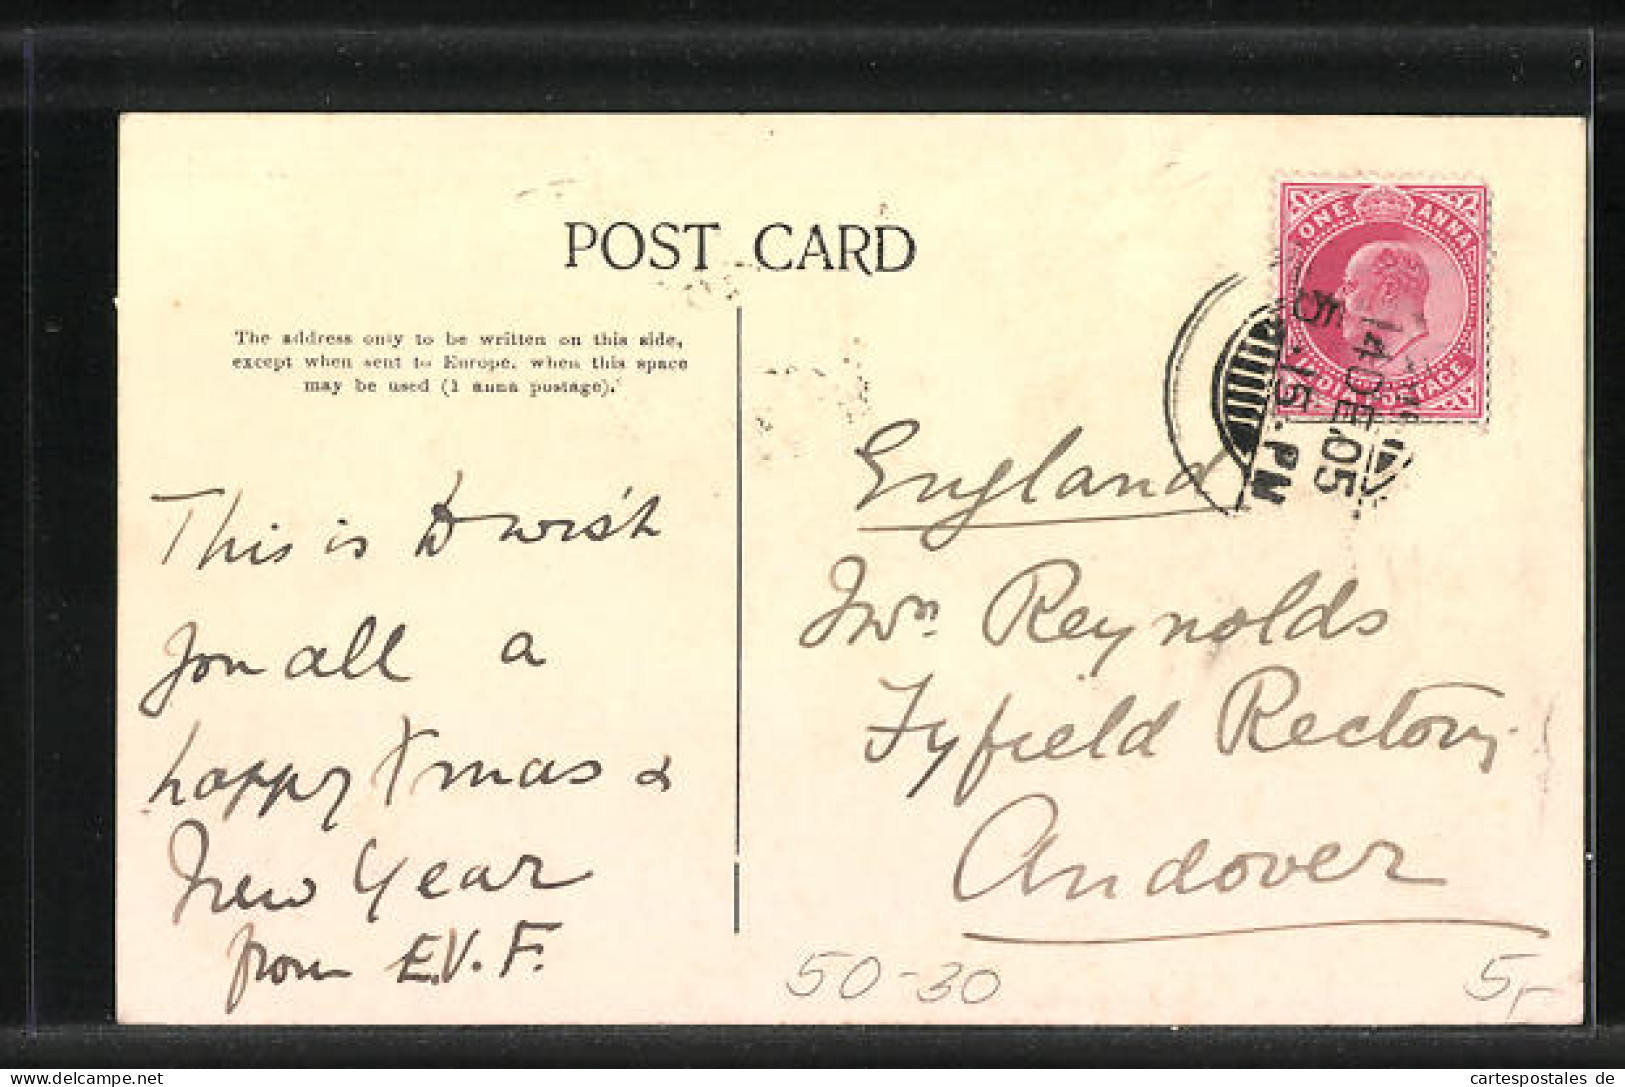 POST CARD
The address only to be written on this side,
except when sent to Europe, when this space
may be used (1 anna postage).
ONE ANNA
INDIA POSTAGE
14 DE.05
5.15.PM
This is to wish
you all a
happy Xmas &
New Year
from E.V.F.
England
Mrs. Reynolds
Fyfield Rectory
Andover
50-30
5,-
cartespostales de